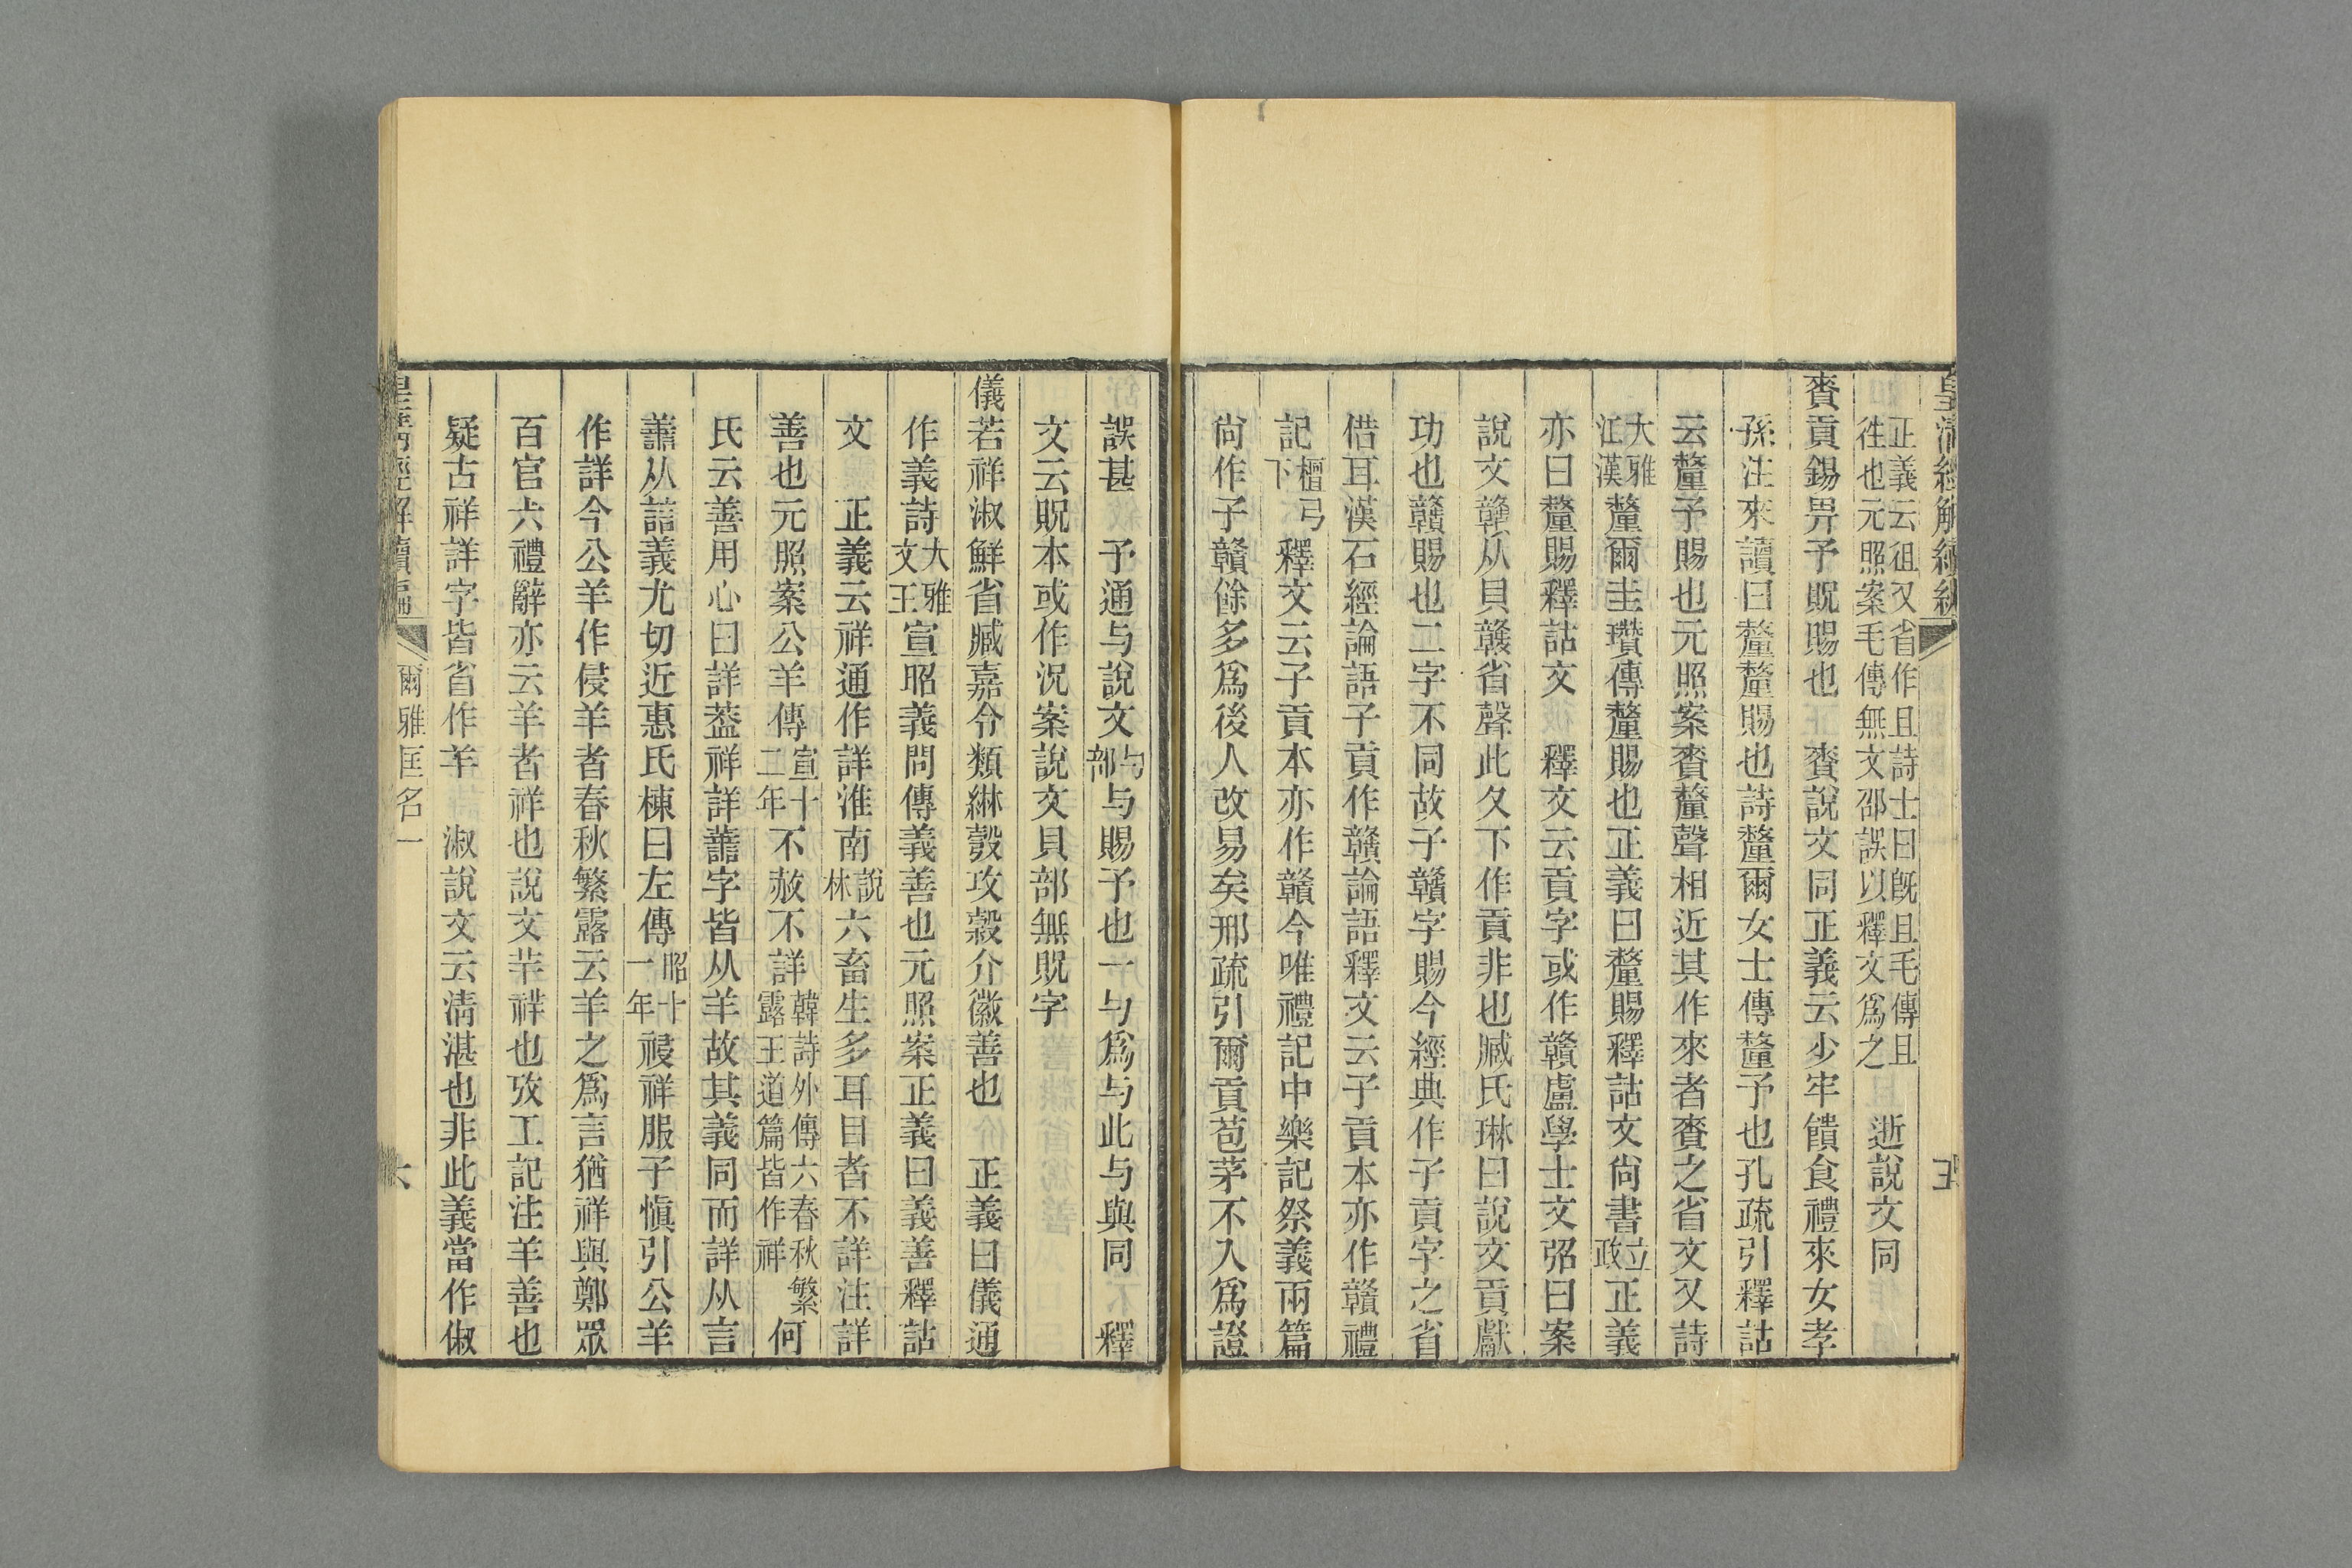 皇清經解續編 五
正義云徂又省作且詩士曰旣且毛傳且
徃也元照案毛傳無文邵誤以釋文爲之
逝說文同
賚貢錫畀予貺賜也 賚說文同正義云少牢饋食禮來女孝
孫注來讀曰釐釐賜也詩釐爾女士傳釐予也孔疏引釋詁
云釐予賜也元照案賚釐聲相近其作來者賚之省文又詩
大雅江漢釐爾圭瓚傳釐賜也正義曰釐賜釋詁文尙書立政正義
亦曰釐賜釋詁文 釋文云貢字或作贛盧學士文弨曰案
說文贛从貝竷省聲此夂下作貢非也臧氏琳曰說文貢獻
功也贛賜也二字不同故子贛字賜今經典作子貢字之省
借耳漢石經論語子貢作贛論語釋文云子貢本亦作贛禮
記檀弓下釋文云子貢本亦作贛今唯禮記中樂記祭義兩篇
尙作子贛餘多爲後人改易矣邢疏引爾貢苞茅不入爲證
誤甚 予通与說文与部与賜予也一勺爲与此与與同 釋
文云貺本或作況案說文貝部無貺字
儀若祥淑鮮省臧嘉令類綝彀攻穀介徽善也 正義曰儀通
作義詩大雅文王宣昭義問傳義善也元照案正義曰義善釋詁
文 正義云祥通作詳淮南說林六畜生多耳目者不詳注詳
善也元照案公羊傳宣十二年不赦不詳韓詩外傳六春秋繁露王道篇皆作祥何
氏云善用心曰詳葢祥詳譱字皆从羊故其義同而詳从言
譱从誩義尤切近惠氏棟曰左傳昭十一年祲祥服子愼引公羊
作詳今公羊作侵羊者春秋繁露云羊之爲言猶祥與鄭眾
百官六禮辭亦云羊者祥也說文羊祥也攷工記注羊善也
疑古祥詳字皆省作羊 淑說文云淸湛也非此義當作俶
皇淸經解續編 爾雅匡名一 六